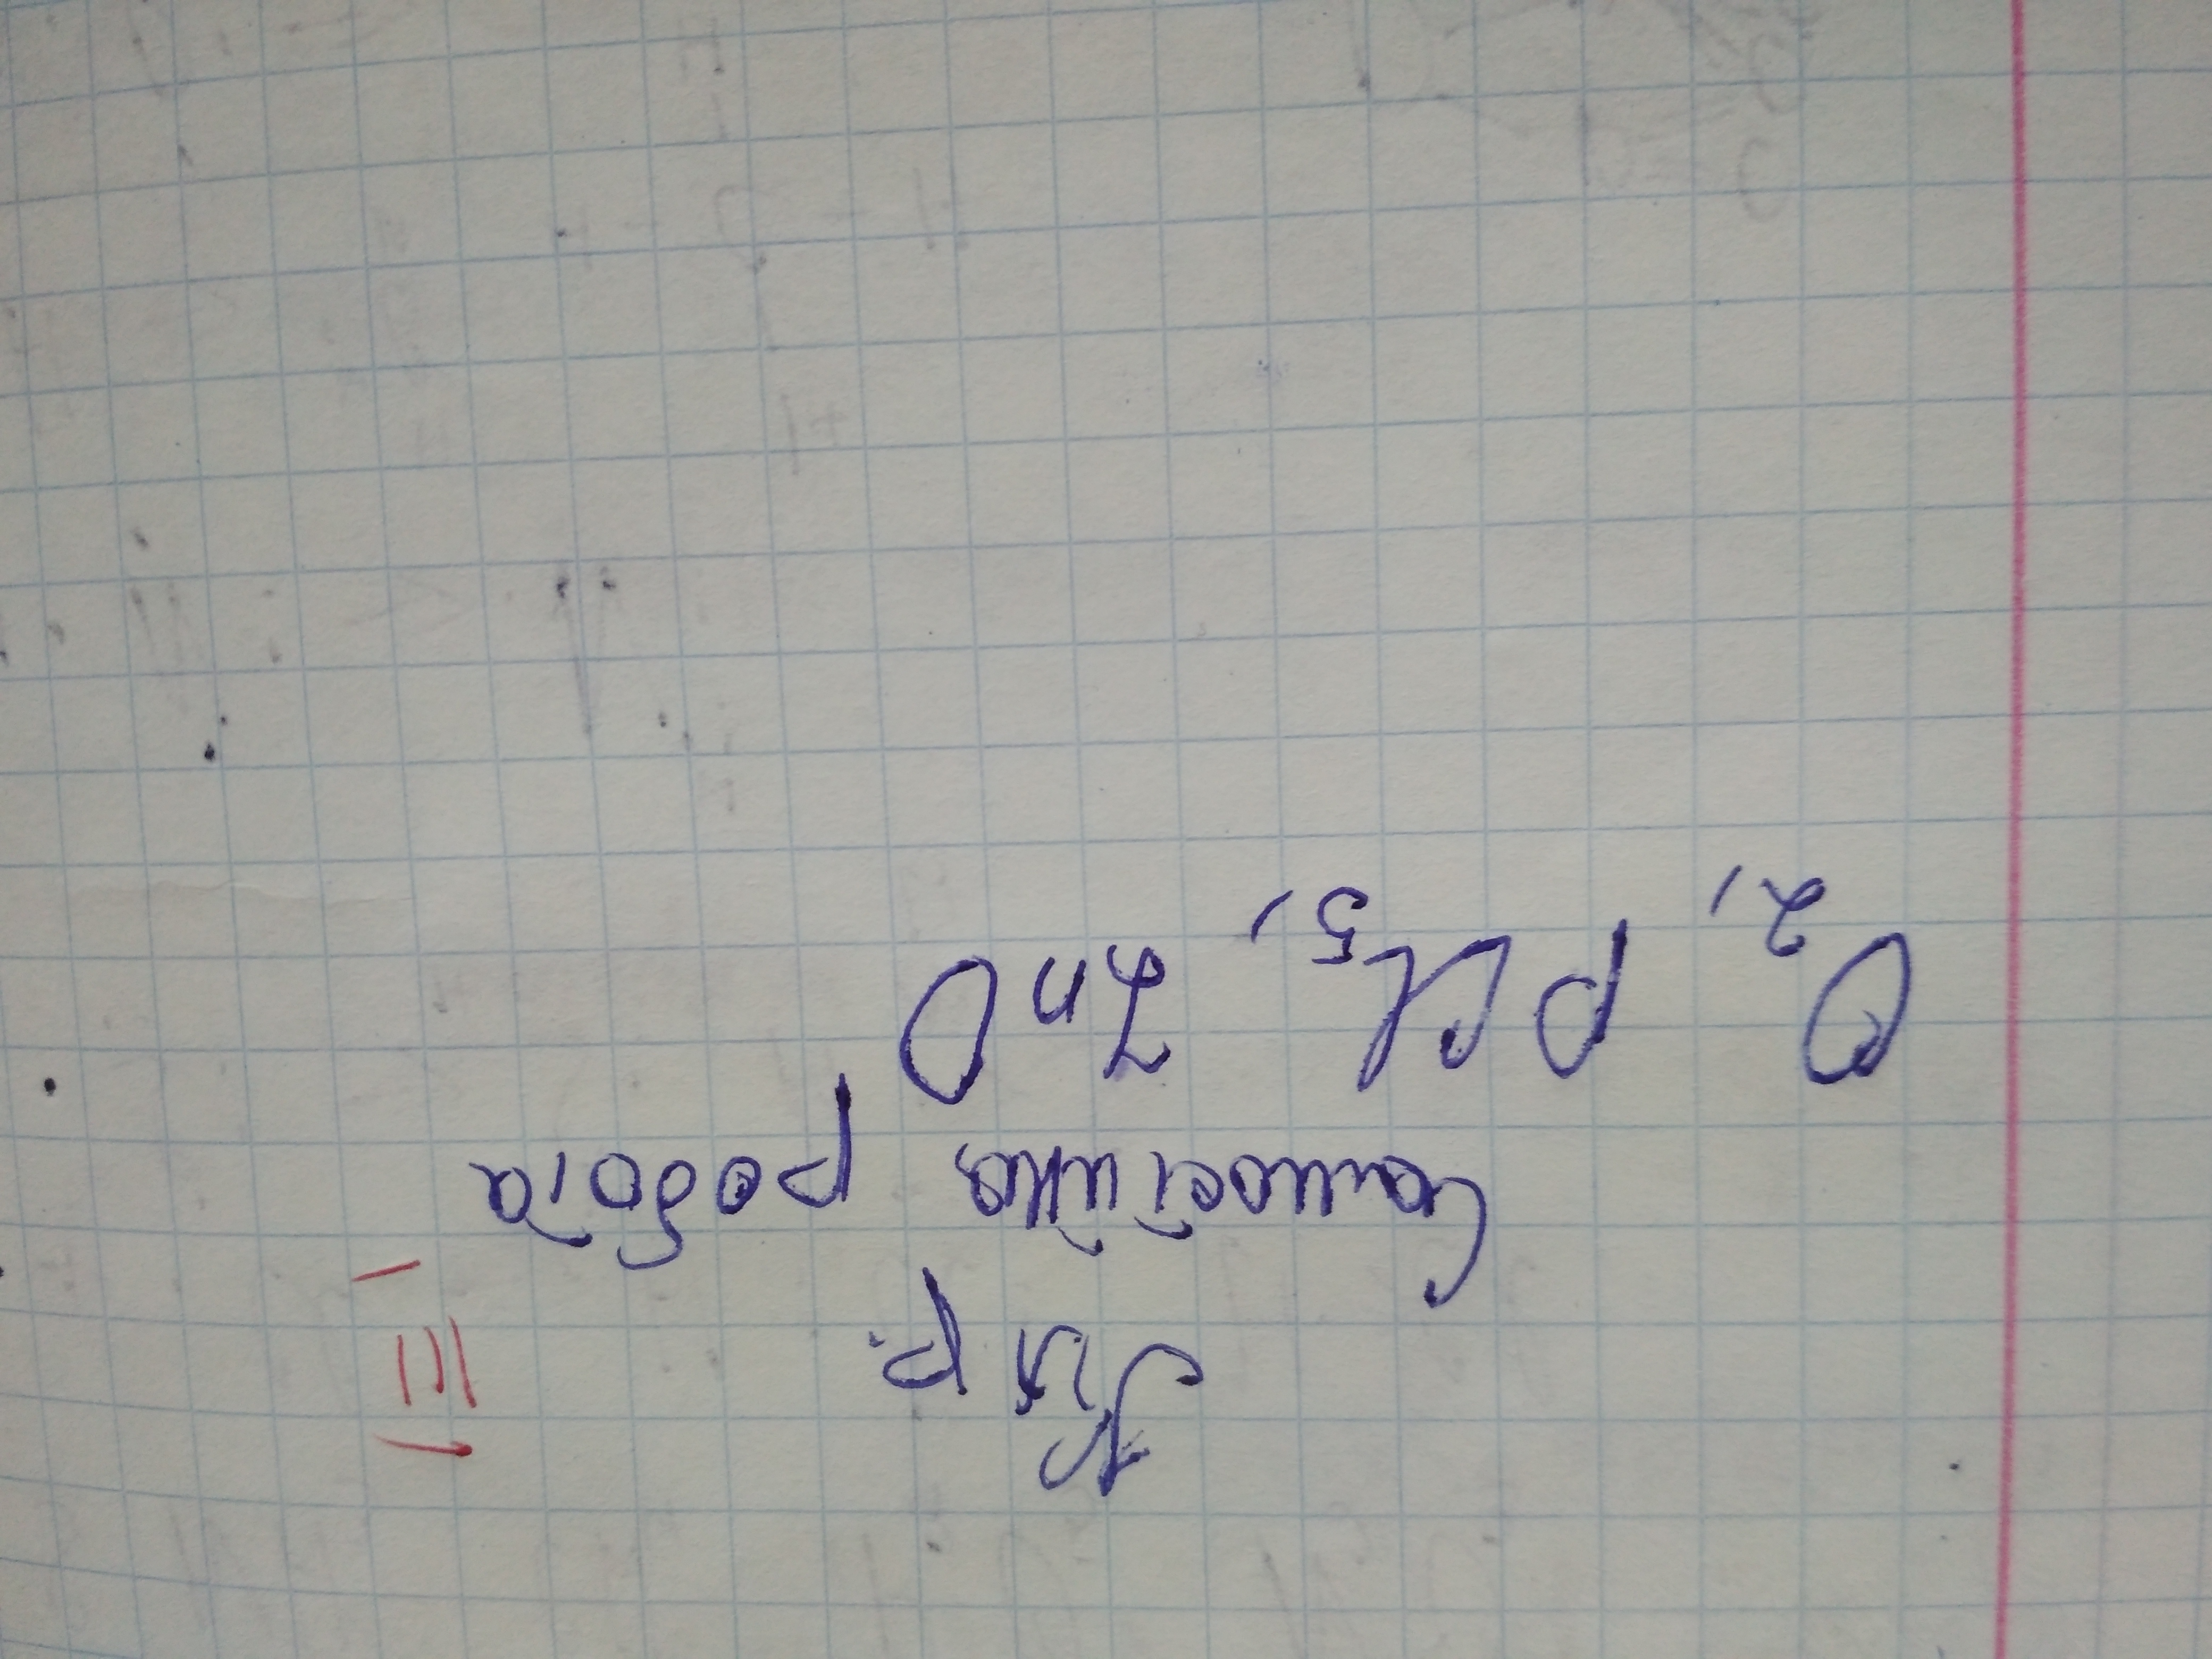 Дик р.
Самостійна робота
O₂, PCl₅, ZnO